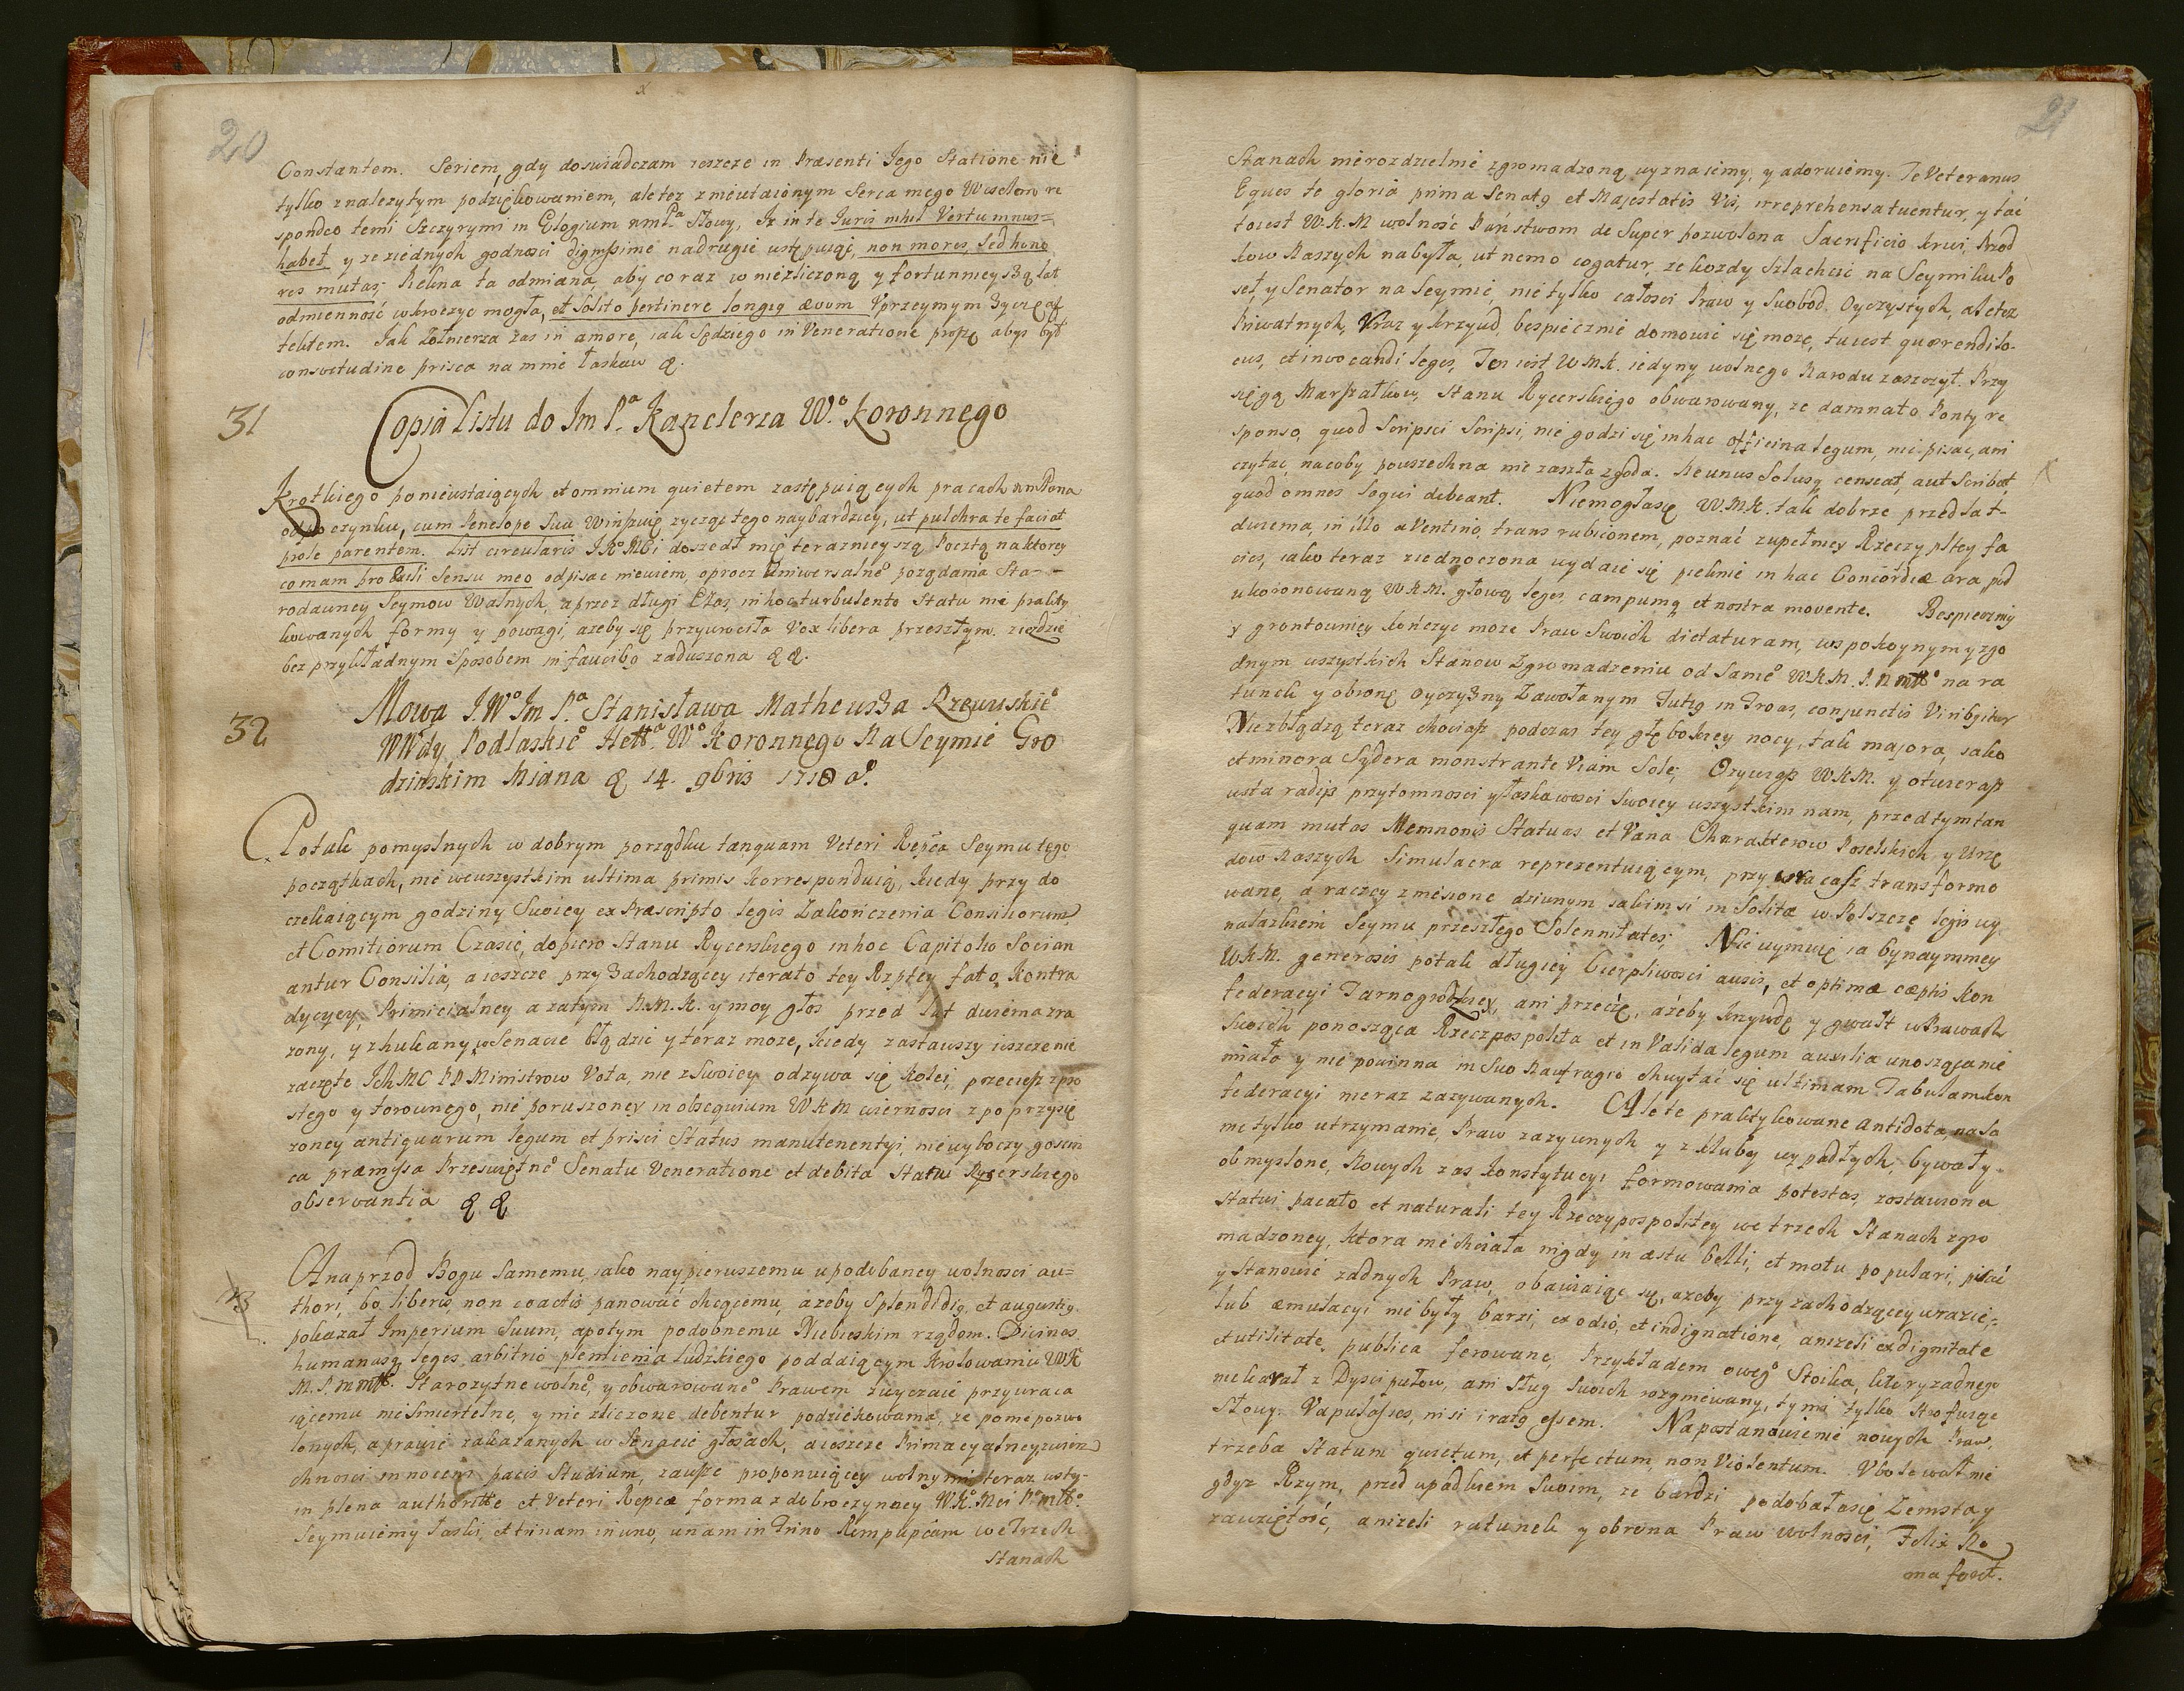 20
Constantem. Seriem, gdy doswiadczam ieszcze in Præsenti Jego Statione nie
tylko znalezytym podziękowaniem, ale tez z nieutaionym Serca mego Weselem re
spondeo temi Szczyrymi in Elogium Słowy, Iz in te Iuris nihil Vertumnus
habet y ze ziednych godnosci dignissime nadrugie ustępuiąc, non mores, Sed hono
res mutas; Pełna ta odmiana, aby co raz w niezliczoną y fortunnieyszą lat
odmienność wkroczyc mogła, et Solito pertinere longig ævum Uprzeymym Zyczę af
fektem. Jak Zołnierza zas in amore, iak Sędziego in Veneratione proszę abys był
consvetudine prisca na mnie łaskaw &.
31
Copia Listu do Im P.ª Kanclerza W.º Koronnego
Krotkiego po nieustaiących et omnium quietem zastępuiących pracach
odpoczynku, cum Penelope Sua Winszuię zycząc tego naybardziey, ut pulchra te faciat
prole parentem. List circularis J.K.º Mci doszedł mię teraznieyszą Pocztą na ktorey
co mam pro Sensu meo odpisac niewiem, oprocz Uniwersalnº poządania Sta-
rodawney Seymow Walnych, a przez długi Czas, in hoc turbulento Statu nie prakty
kowanych formy y powagi, azeby się przywrociła Vox libera przeszłym. zieżdzie
bez przykładnym Sposobem in faucibg zaduszona &&.
32
Mowa J.Wº Im P.ª Stanisława Matheusza Rzewuskieº
WWdy Podlaskieº Hettª Wº Koronnego Na Seymie Gro
dzinskim Miana & 14. 9bris 1718 Aº.
Po tak pomyslnych w dobrym porządku tanquam Veteri Repca Seymu tego
początkach, nie wewszystkim ultima primis Korresponduią, kiedy przy do
czekaiącym godziny Swoiey ex Præscripto legis Zakończenia Consiliorum
et Comitiorum Czasie, dopiero Stanu Rycerskiego in hoc Capitolio Socian
antur Consilia, a ieszcze przy Zachodzącey iterato tey Rzptey fato, Kontra
dycyey, Primicialney a zatym N.M.K. y moy głos przed lat dwiema zra
zony, y zhukany w Senacie błądzic y teraz moze, kiedy zastawszy ieszcze nie
zaczęte IchMC PP Ministrow Vota, nie zSwoiey odzywa się Kolei, przeciesz z pro
stego y torownego, nie poruszoney in obsequium WKM wiernosci z po przysię
zoney antiquarum legum et prisci Status manutenentyi, niewyboczy goscin
ca præmissa Przeswiętnº Senatu Veneratione et debita Statui Rycerskiego
observantia &. &
33
A naprzod Bogu Samemu, iako naypierwszemu upodobaney wolnosci au=
thori, bo liberis, non coactis panować chcącemu, azeby Splendidig et augustig
pokazał Imperium Suum, apotym podobnemu Niebieskim rządom. Divinas
humanasq leges arbitrio plemienia ludzkiego poddaiącym Krolowaniu WK
M. P. n mttº. Starozytne wolnº, y obwarowanº Prawem zwyczaie przywraca
iącemu nieśmiertelne, y nie zliczone debentur podziekowania, ze po nie pozwo
lonych, a prawie zakazanych w Senacie głosach, a ieszcze Primacyalney zwierz
chnosci innocens pacis Studium, zausze proponuiącey wolnymi teraz usty-
in plena authoritte et Veteri Repcæ forma z dobroczynney W.K.º Mci P.º mttº.
Seymuiemy łaski, et trinam in uno, unam in Trino Rempupcam we Trzech
Stanach
21
Stanach nierozdzielnie zgromadzoną wyznaiemy, y adoruiemy. Te Veteranus
Eques te gloria prima Senatg et Majestatis Vis, irreprehensa tuentur, y tać
toiest W.K.M wolność Państwom de Super pozwolona Sacrificio krwi, Przod
kow Naszych nabyta, ut nemo cogatur, ze kozdy Szlachcic na Seymiku Po
seł, y Senator na Seymie, nie tylko całosci Praw y Swobod Oyczystych, ale tez
Priwatnych, Uraz y krzywd, bespiecznie domowic się moze, tu iest quærendi lo-
cus, et invocandi leges, Ten iest WMK. iedyny wolnego Narodu zaszczyt. Przy
sięgą Marszałkow, Stanu Rycerskiego obwarowany, ze damnato Ponty re
sponso, quod Scripsi Scripsi, nie godzi się in hac officina legum, nic pisac, ani
czytac, nacoby powszechna nie zaszła zgoda. Ne unus Solusq censeat, aut Scribat,
quod omnes Sequi debeant. Niemogłasię W.M.K. tak dobrze przed lat-
dwiema, in illo aVentino, trans rubiconem, poznać zupełney Rzeczypltey fa
cies, iako teraz ziednoczona wydaie się pieknie in hac Concordiæ ara, pod
ukoronowaną WKM. głową leges, campumq et nostra movente. Bespieczniey
y grontowniey kończyc moze Praw Swoich dictaturam, w spokoynym y zgo
dnym wszystkich Stanow Zgromadzeniu od Samº WKM. P. N mttº na ra
tunek y obronę Oyczyzny Zawołanym Tutig in Troas, conjunctis Viribg itur
Niezbłądzą teraz chociasz podczas tey głębokiey nocy, tak majora, iako
et minora Sydera monstrante Viam Sole; Ozywiasz WKM. y otwierasz
usta radijs przytomnosci y łaskawosci Swoiey wszystkim nam, przedtym tan
quam mutas Memnonis Statuas et Vana Charakterow Poselskich y Urzę
dow Naszych Simulacra reprezentuiącym, przywracasz transformo
wane, a raczey zniesione dziwnym iakimsi in Solita w Polszcze legis wy
nalazkiem Seymu przeszłego Solennitates; Nie uymuię ia bynaymniey
WKM. generosis potak długiey Cierpliwosci ausis, et optimæ cæptis kon
federacyi Tarnogrodzkiey, ani przeczę, ażeby krzywdę y gwałt w Prawach
Swoich ponosząca Rzeczpospolita et in Valida legum auxilia unosząca nie
miała y nie powinna in Suo Naufragio chwytać się ultimam Tabulam kon
federacyi nieraz zazywanych. Ale te praktykowane antidota, na Sa
me tylko utrzymanie, Praw zazywnych y z kluby wypadłych, bywały
obmyslone, Nowych zas konstytucyi formowania potestas, zostawiona
Statui pacato et naturali tey Rzeczypospolitey we trzech Stanach zgro
madzoney, ktora niechciała nigdy in æstu belli, et motu populari, pisać
y Stanowic zadnych Praw, obawiaiąc się, azeby przy zachodzącey urazie,
lub æmulacyi nie były barzi, ex odio, et indignatione, anizeli ex dignitate
et utilitate publica ferowane, Przykładem owegº Stoika, ktory zadnego
nie karał z Dyscipułow, ani Sług Swoich rozgniewany, tymi tylko strofuiąc
Słowy. Vapulasses, nisi iratg essem. Na postanowienie nowych Praw,
trzeba Statum quietum, et perfectum, non Violentum. Ubolewał nie
gdyz Rzym, przed upadkiem Swoim, ze bardzi podobałasię Zemsta y
zawziętość, anizeli ratunek y obrona Praw wolnosci, Felix Ro
ma foret.